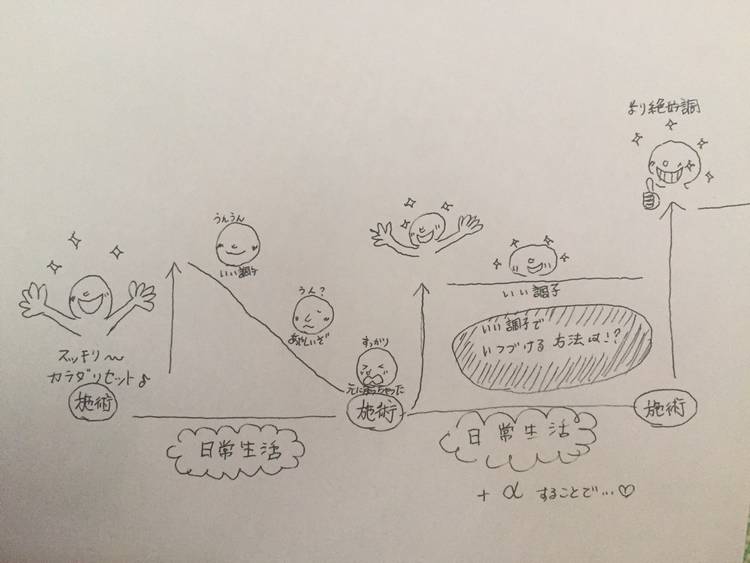 スッキリ〜
カラダリセット♪
施術
うんうん
いい調子
うん?
あやしいぞ
すっかり
元に戻っちゃった
施術
日常生活
いい調子
いい調子で
いつづける方法は!?
日常生活
+αすることで…♡
より絶好調
施術